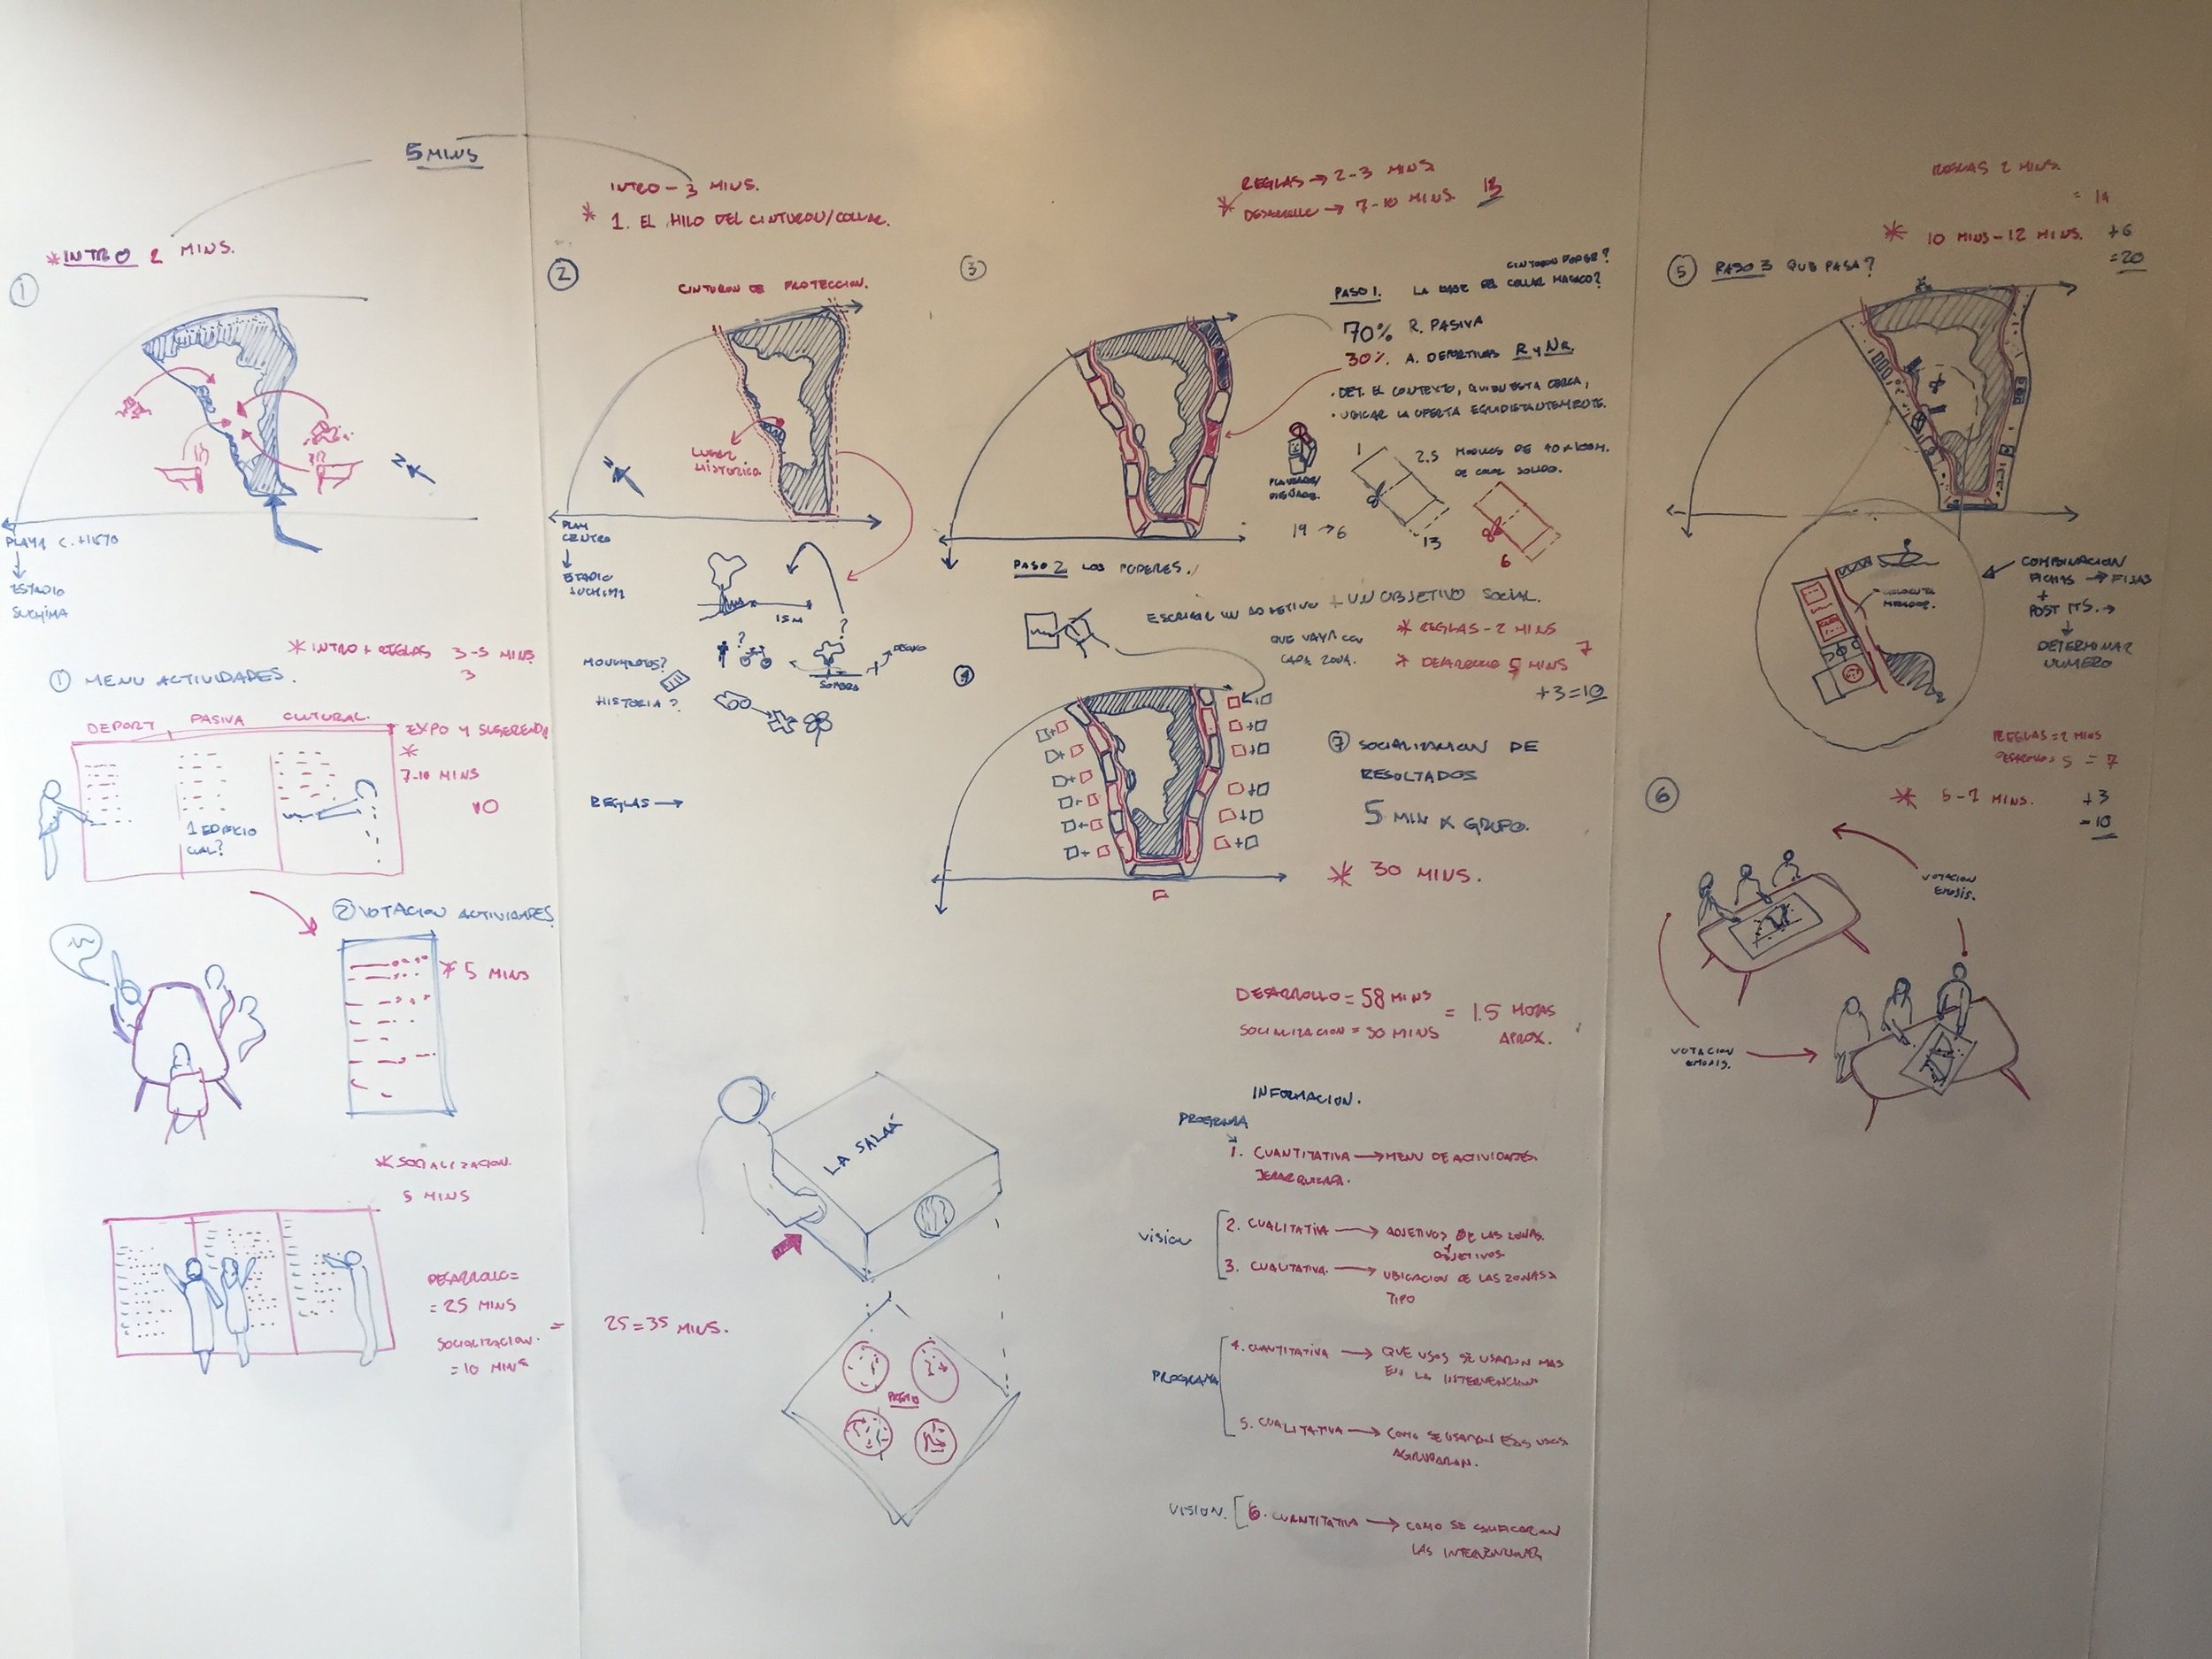 5 MINS
*INTRO 2 MINS.
1
N
PLAYA
ESTADIO
SUCHIMA
* INTRO + REGLAS 3-5 MINS
3
1 MENU ACTIVIDADES.
DEPORT PASIVA CULTURAL.
*
7-10 MINS
10
1 EDIFICIO
CUAL?
2 VOTACION ACTIVIDADES
* 5 MINS
* SOCIALIZACION.
5 MINS
DESARROLLO=
= 25 MINS
SOCIALIZACION.
= 10 MINS
= 25=35 MINS.
INTRO - 3 MINS.
* 1. EL HILO DEL CINTURON/COLLAR.
2
CINTURON DE PROTECCION.
LUGAR
HISTORICO
N
CENTRO
ESTADIO
SUCHIMA
15M
?
?
SOMBRA
HISTORIA?
REGLAS →
REGLAS → 2-3 MINS
* DESARROLLO → 7-10 MINS. 13
3
CINTURON PODER?
PASO 1. LA BASE DEL COLLAR MAGICO?
70% R. PASIVA
30% A. DEPORTIVAS R y NR.
• DET. EL CONTEXTO, QUIEN ESTA CERCA,
• UBICAR LA OFERTA EQUIDISTANTEMENTE.
1
2.5 MODULOS DE 40 x 100M.
DE COLOR SOLIDO.
19 → 6
13
6
PASO 2 LOS PODERES.
ESCRIBIR UN ADJETIVO + UN OBJETIVO SOCIAL.
QUE VAYA CON
CADA ZONA.
* REGLAS - 2 MINS
* DESARROLLO 5 MINS 7
+3=10
4
7 SOCIALIZACION DE
RESULTADOS
5 MIN X GRUPO.
* 30 MINS.
DESARROLLO = 58 MINS
SOCIALIZACION = 30 MINS
= 1.5 HORAS
APROX.
LA SALAÁ
INFORMACION.
PROGRAMA
1. CUANTITATIVA → MENU DE ACTIVIDADES
JERARQUIZADA.
VISION
2. CUALITATIVA → ADJETIVOS DE LAS ZONAS.
OBJETIVOS
3. CUALITATIVA. → UBICACION DE LAS ZONAS
TIPO
PROGRAMA
4. CUANTITATIVA → QUE USOS SE USARON MAS
EN LA INTERVENCION
5. CUALITATIVA → COMO SE USARON ESOS USOS
AGRUPARON.
VISION.
6. CUANTITATIVA → COMO SE CALIFICARON
LAS INTERVENCIONES
REGLAS 2 MINS.
= 14
* 10 MINS - 12 MINS. +6
=20
5 PASO 3 QUE PASA?
COMBINACION
FICHAS → FIJAS
+
POST ITS. →
DETERMINAR
NUMERO
REGLAS = 2 MINS
DESARROLLO = 5 = 7
* 5-7 MINS. +3
=10
6
VOTACION
EMOJIS.
VOTACION
EMOJIS.